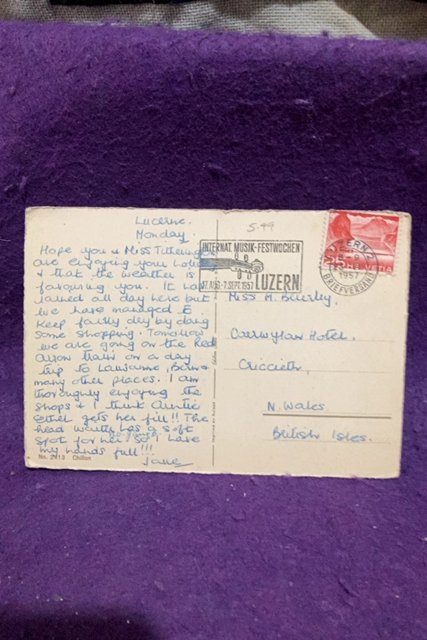 Lucerne.
Monday.
Hope you & Miss Titterington
are enjoying your
& that the weather is
favouring you. It has
rained all day here but
we have managed to
keep fairly dry by doing
some shopping. Tomorrow
we are going on the Red
Arrow train on a day
trip to Lausanne, Bern &
many other places. I am
thoroughly enjoying the
shops & I think Auntie
Ethel gets her fill!! The
head waiter has a soft
spot for her so I have
my hands full!!!
Jane
No. 2913 Chillon
5.99
INTERNAT. MUSIK-FESTWOCHEN
LUZERN
17. AUG.-7. SEPT. 1957
LUZERN 2
1957
BRIEFVERSAND
Miss M.
Caerwylan Hotel,
Criccieth,
N. Wales
British Isles.